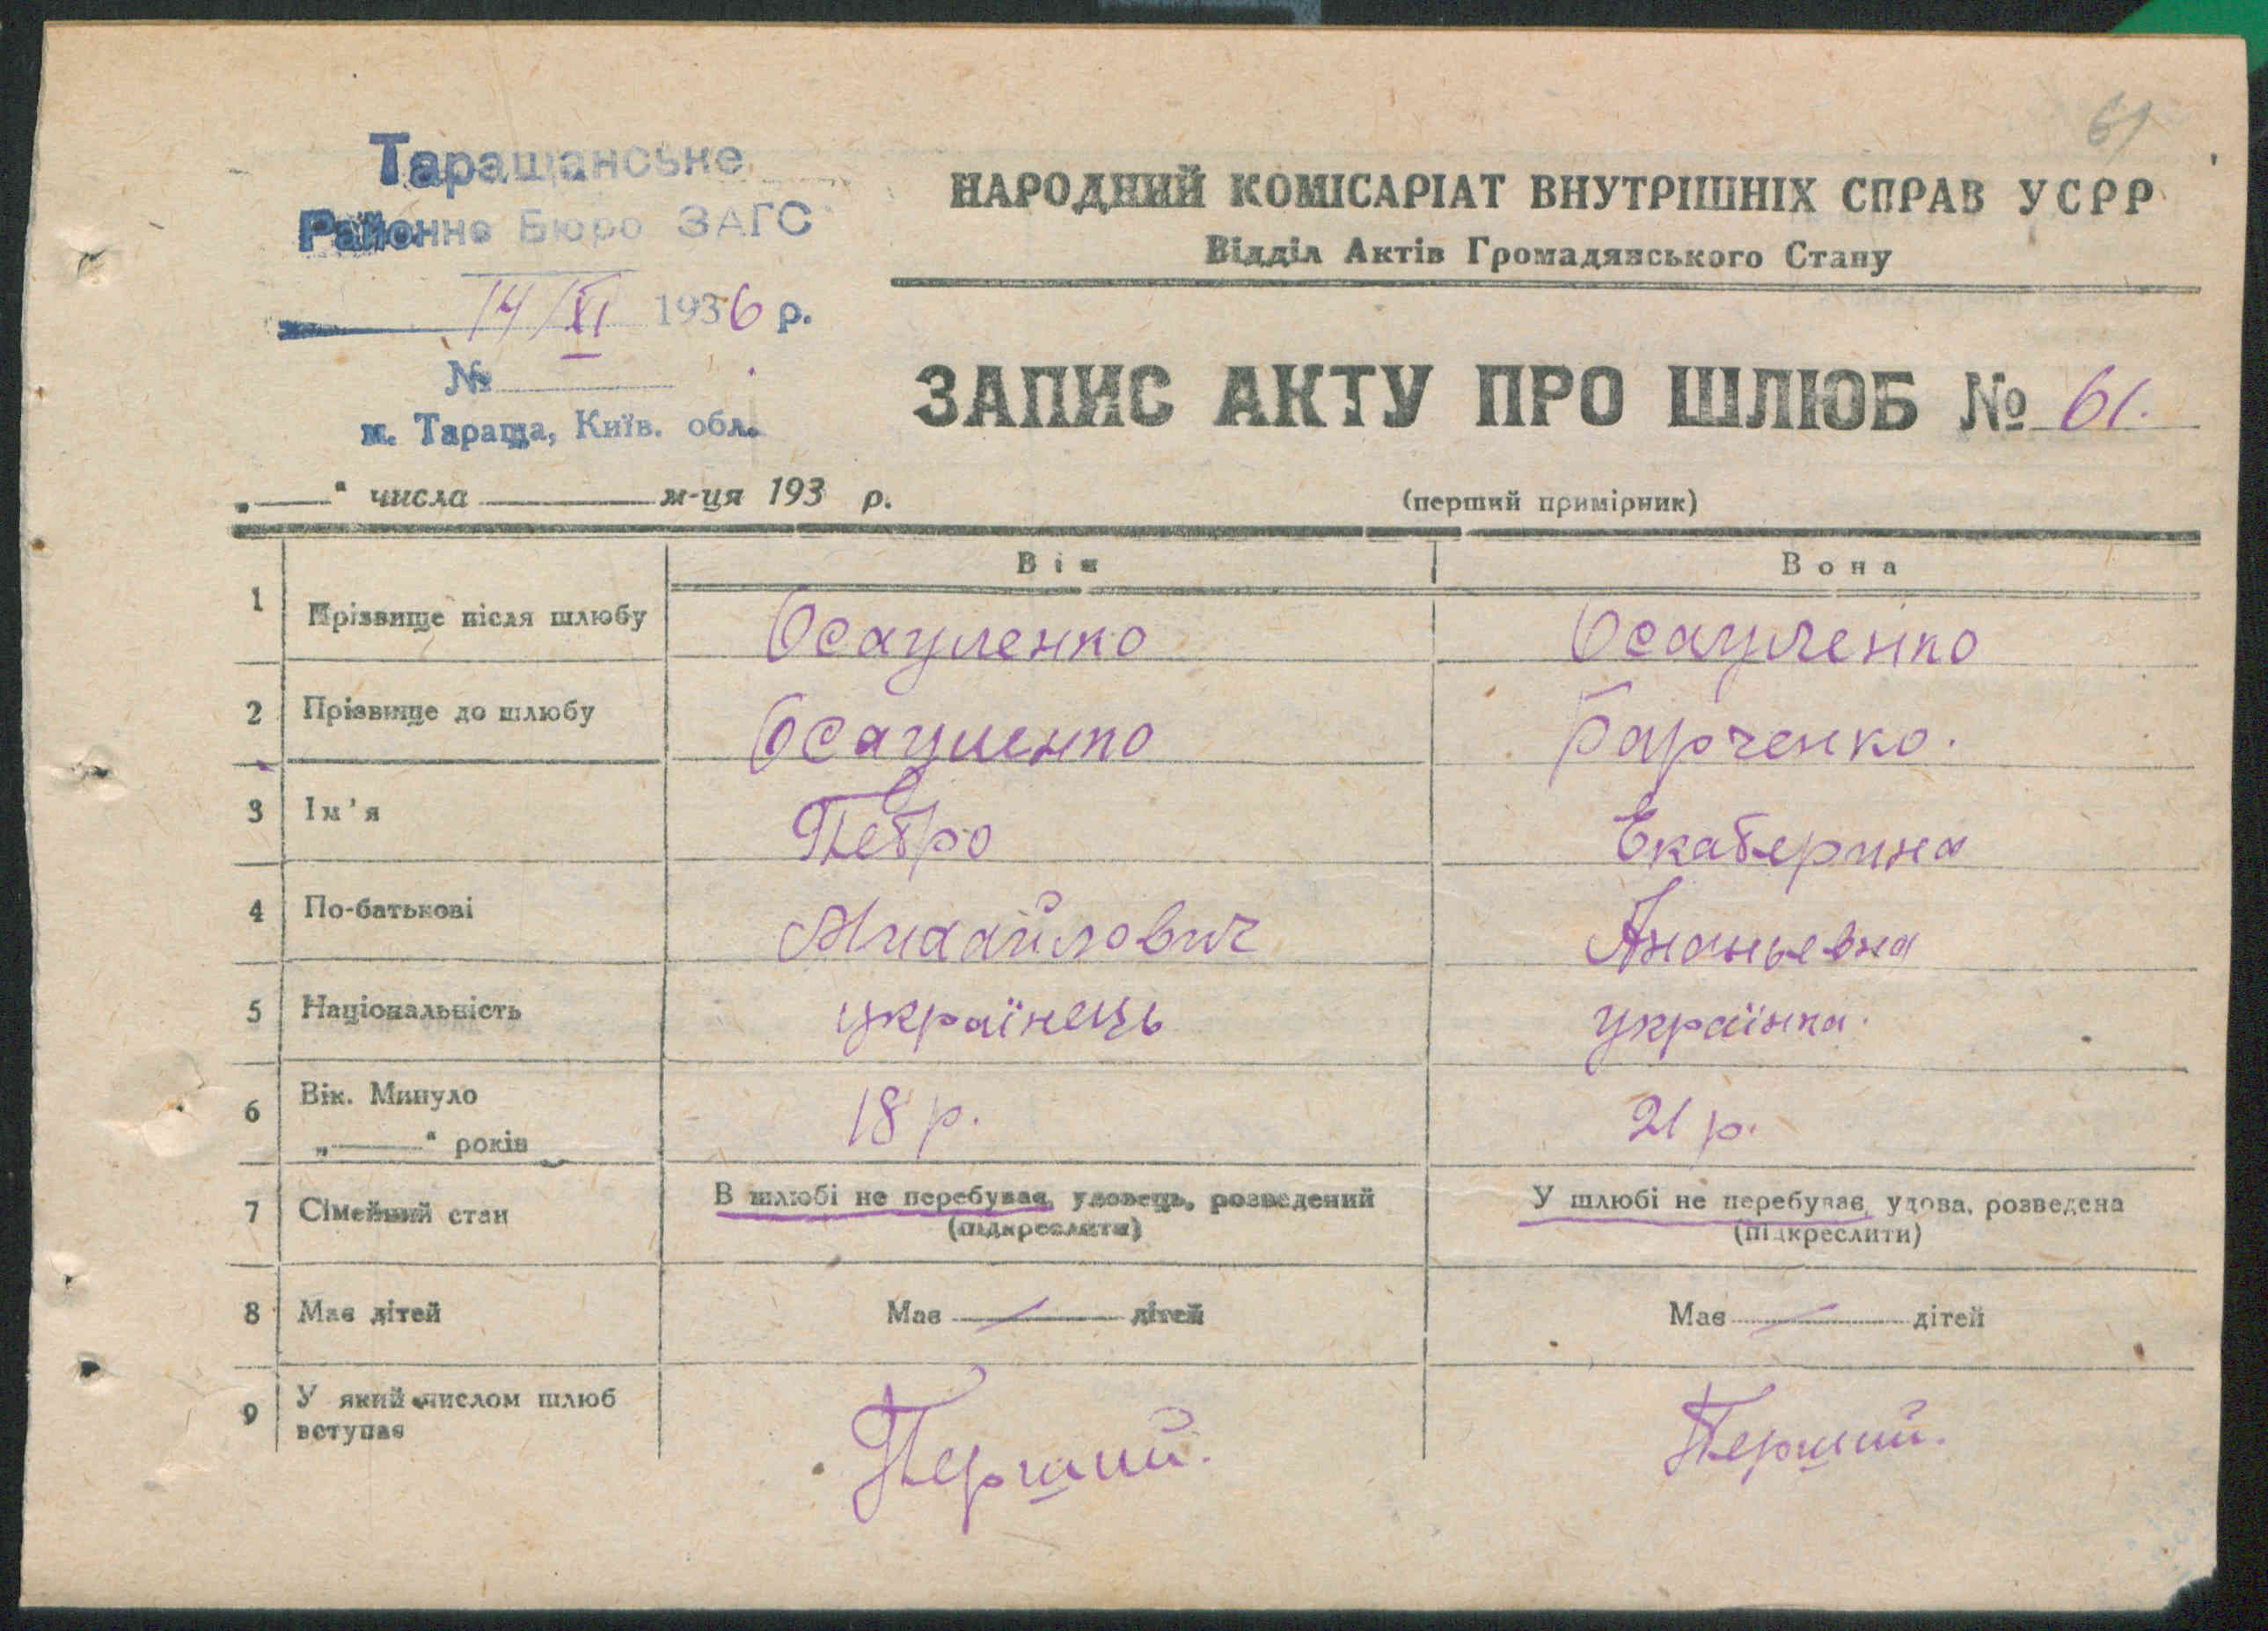 61
Таращанське
Районне Бюро ЗАГС
14/XI 1936 р.
№
м. Тараща, Київ. обл.
НАРОДНИЙ КОМІСАРІАТ ВНУТРІШНІХ СПРАВ УСРР
Відділ Актів Громадянського Стану
ЗАПИС АКТУ ПРО ШЛЮБ № 61.
„ “ числа м-ця 193 р.
(перший примірник)
Він Вона
1 Прізвище після шлюбу Осауленко Осауленко
2 Прізвище до шлюбу Осауленко Барченко.
3 Ім'я Петро Екатерина
4 По-батькові Михайлович Ананьевна
5 Національність українець українка.
6 Вік. Минуло 18 р. 21 р.
„ “ років
7 Сімейний стан В шлюбі не перебував, удовець, розведений У шлюбі не перебуває, удова, розведена
(підкреслити) (підкреслити)
8 Має дітей Має — дітей Має — дітей
9 У який числом шлюб
вступає Перший. Перший.